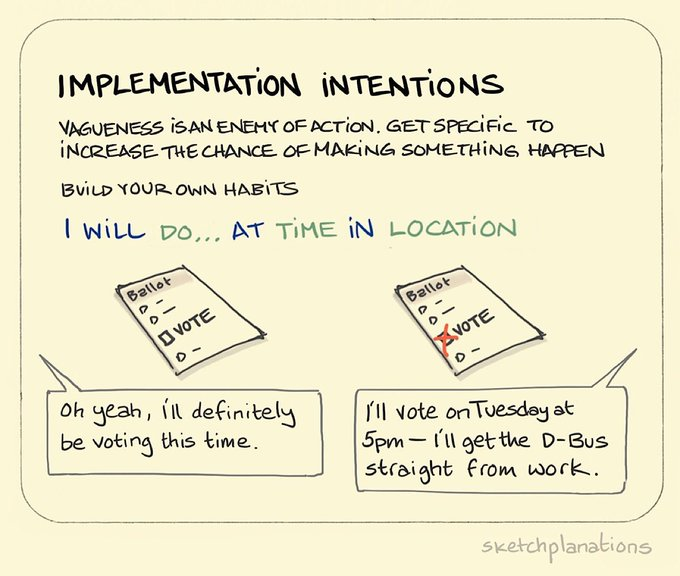 IMPLEMENTATION INTENTIONS
VAGUENESS IS AN ENEMY OF ACTION. GET SPECIFIC TO
INCREASE THE CHANCE OF MAKING SOMETHING HAPPEN
BUILD YOUR OWN HABITS
I WILL DO... AT TIME IN LOCATION
Ballot
VOTE
Ballot
VOTE
Oh yeah, i'll definitely
be voting this time.
I'll vote on Tuesday at
5pm — I'll get the D-Bus
straight from work.
sketchplanations